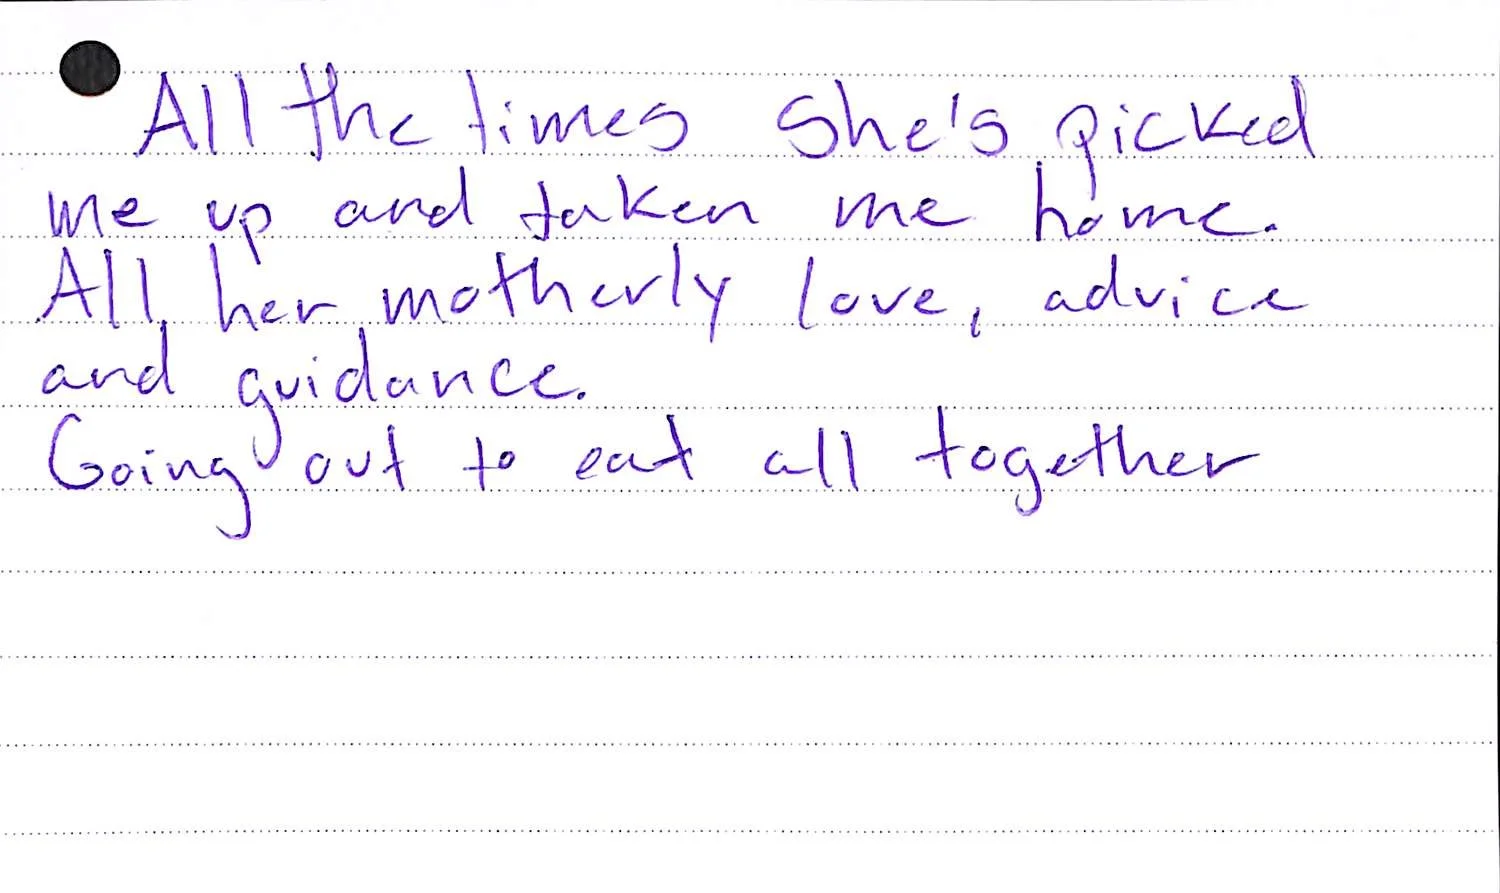 All the times she's picked
me up and taken me home.
All her motherly love, advice
and guidance.
Going out to eat all together